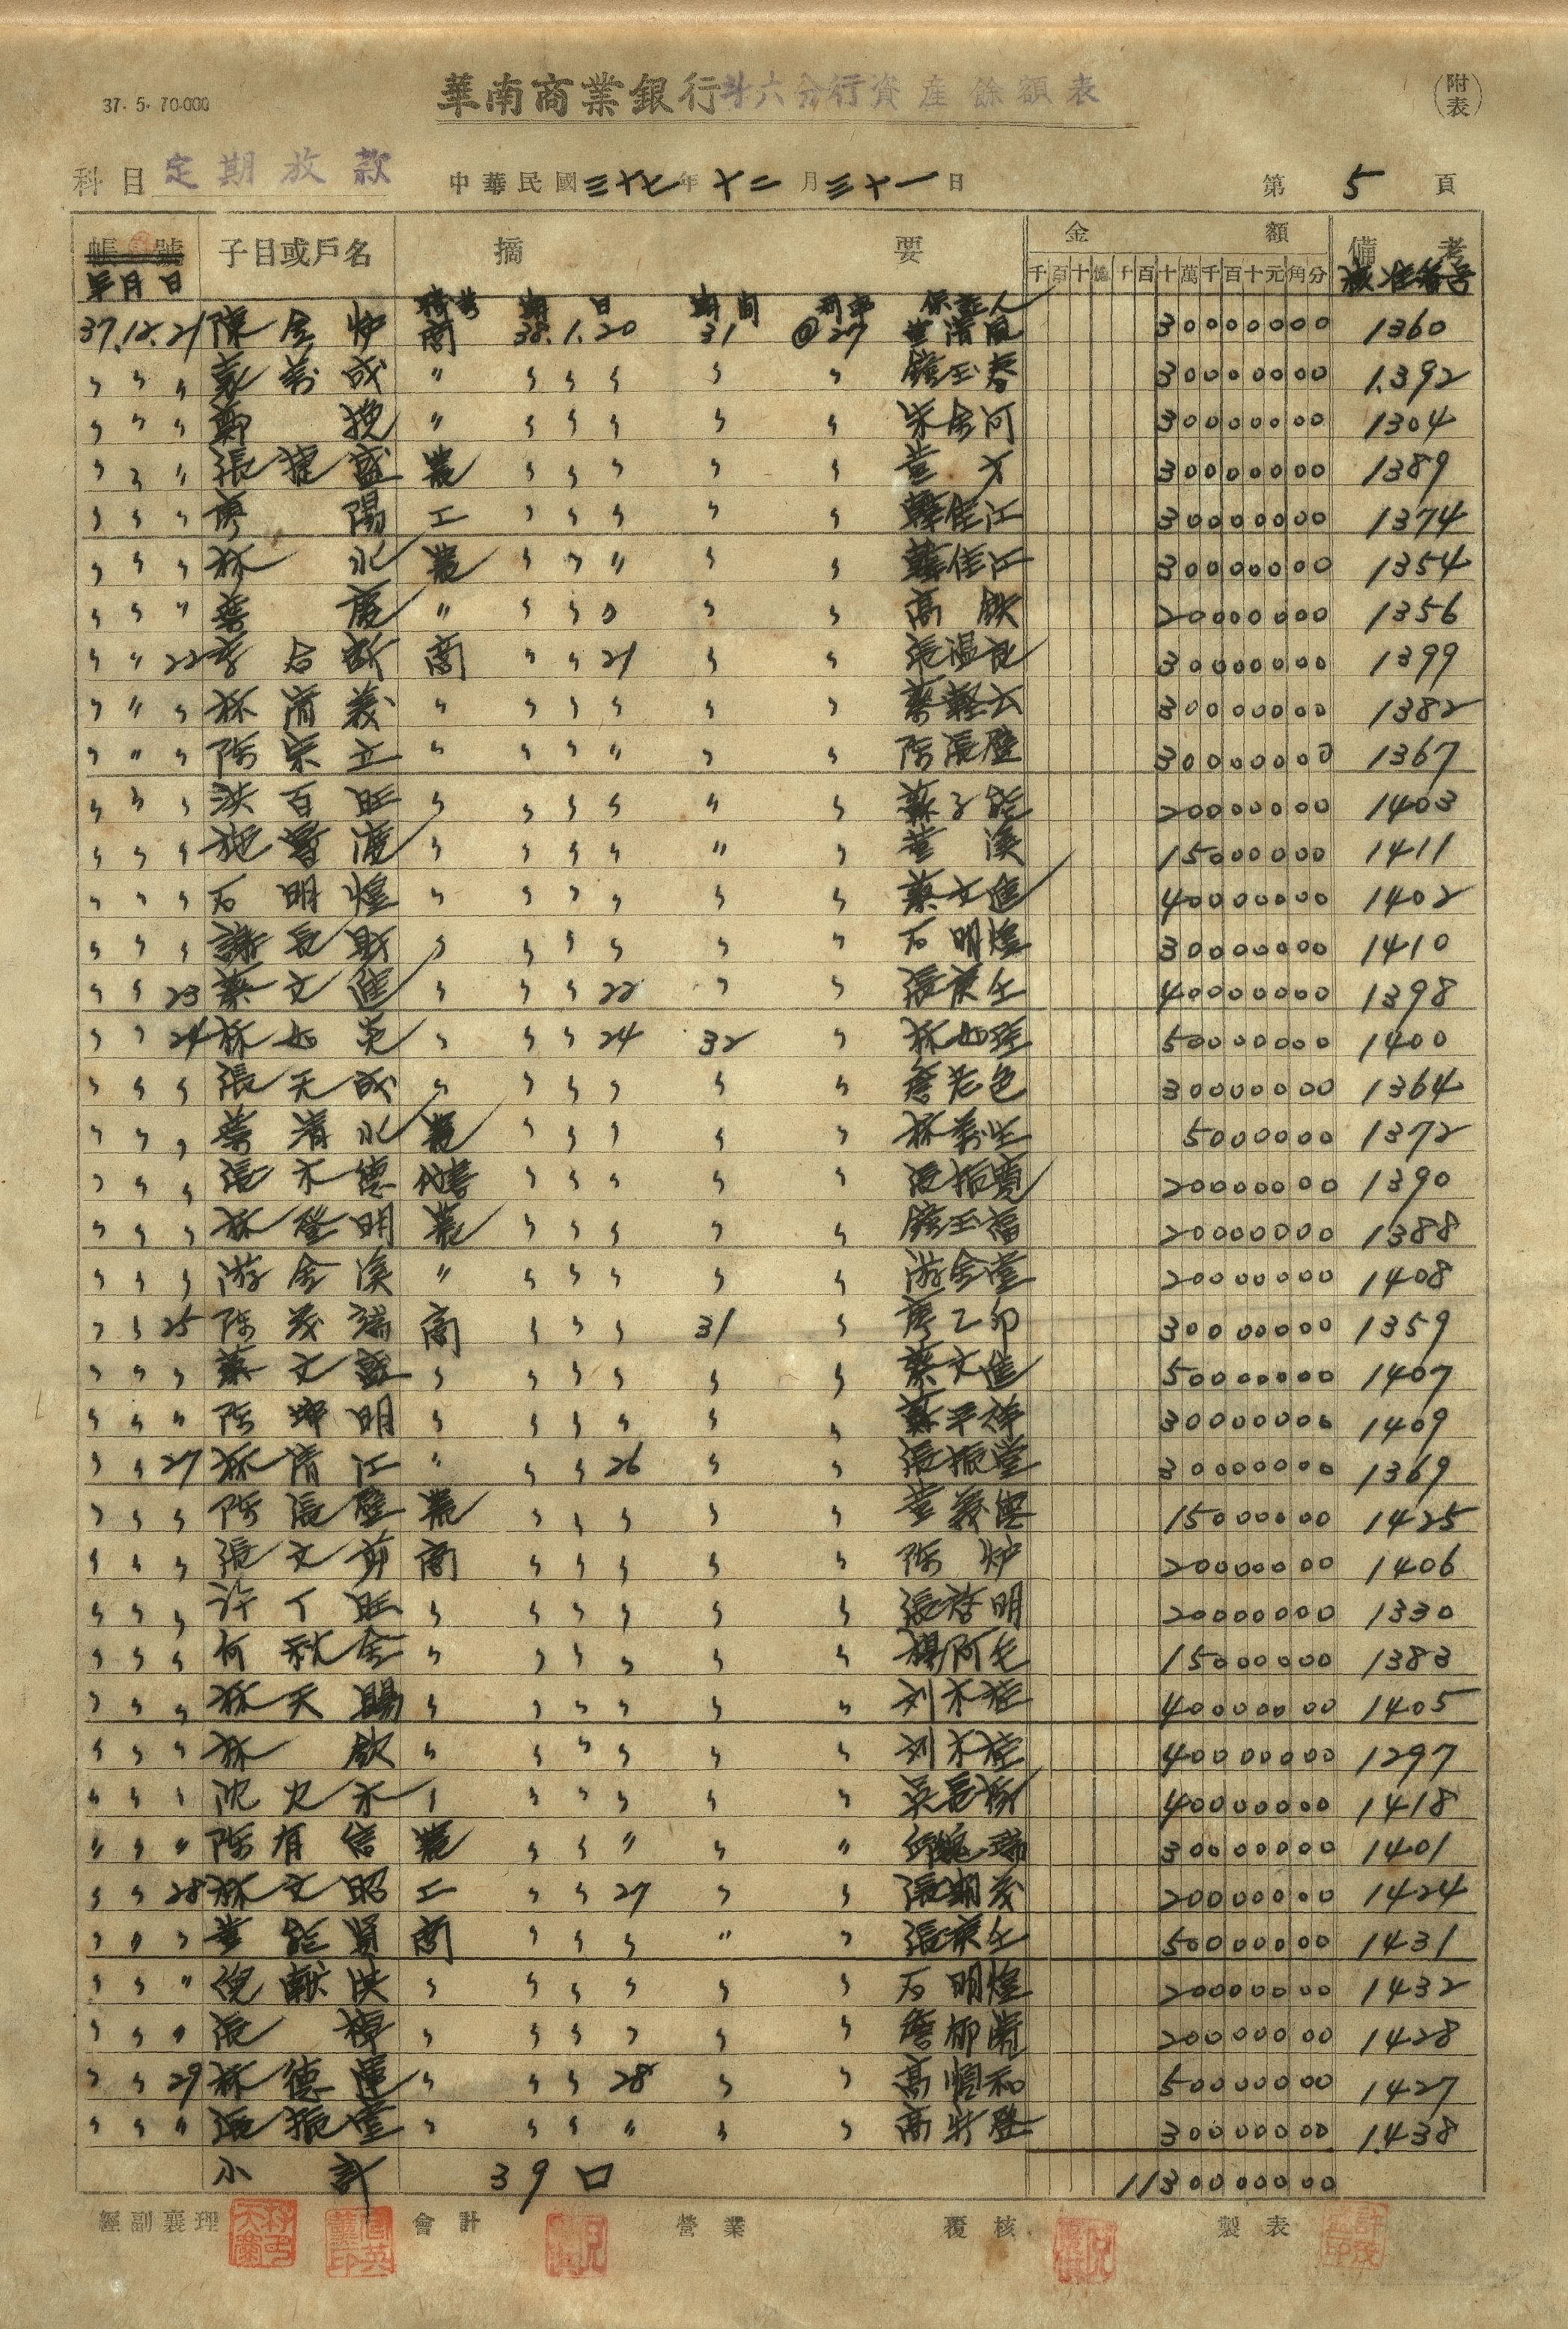 37. 5. 70.000
華南商業銀行斗六分行資産餘額表
(附表)
科目 定期放款 中華民國三十七年十二月三十一日 第 5 頁
帳號 子目或戶名 摘要 金額 備考
年月日 千百十億千百十萬千百十元角分 核准番号
職業 期日 期间 利率 保証人
37.12.21 陳金炉 商 38.1.20 31 @27 黄清良 30000000 1360
〃 〃 〃 成 〃 〃 〃 〃 〃 〃 鍾玉春 30000000 1392
〃 〃 〃 鄭挽 〃 〃 〃 〃 〃 〃 朱金河 30000000 1304
〃 〃 〃 張捷盛 農 〃 〃 〃 〃 〃 30000000 1389
〃 〃 〃 廖陽 工 〃 〃 〃 〃 〃 佳江 30000000 1374
〃 〃 〃 林水 農 〃 〃 〃 〃 〃 佳江 30000000 1354
〃 〃 〃 〃 〃 〃 〃 〃 〃 高鉄 20000000 1356
〃 〃 22 李合新 商 〃 〃 21 〃 〃 張温良 30000000 1399
〃 〃 〃 林清義 〃 〃 〃 〃 〃 〃 30000000 1382
〃 〃 〃 陈宗立 〃 〃 〃 〃 〃 〃 陈張壁 30000000 1367
〃 〃 〃 洪百旺 〃 〃 〃 〃 〃 〃 20000000 1403
〃 〃 〃 施 〃 〃 〃 〃 〃 〃 黄溪 15000000 1411
〃 〃 〃 石明煌 〃 〃 〃 〃 〃 〃 蔡文進 40000000 1402
〃 〃 〃 謝長財 〃 〃 〃 〃 〃 〃 石明煌 30000000 1410
〃 〃 23 蔡文進 〃 〃 〃 22 〃 〃 張庚壬 40000000 1398
〃 〃 24 林 〃 〃 〃 24 32 〃 林 50000000 1400
〃 〃 〃 張天成 〃 〃 〃 〃 〃 〃 詹老色 30000000 1364
〃 〃 〃 清水 農 〃 〃 〃 〃 〃 林萬生 5000000 1372
〃 〃 〃 張木德 代書 〃 〃 〃 〃 〃 張振寬 20000000 1390
〃 〃 〃 林登明 農 〃 〃 〃 〃 〃 鍾玉福 20000000 1388
〃 〃 〃 游金溪 〃 〃 〃 〃 〃 〃 游金堂 20000000 1408
〃 〃 25 陈茂瑞 商 〃 〃 〃 31 〃 廖乙卯 30000000 1359
〃 〃 〃 蔡文盛 〃 〃 〃 〃 〃 〃 蔡文進 50000000 1407
〃 〃 〃 陈坤明 〃 〃 〃 〃 〃 〃 30000000 1409
〃 〃 27 林清江 〃 〃 〃 26 〃 〃 張振堂 30000000 1369
〃 〃 〃 陈張壁 農 〃 〃 〃 〃 〃 15000000 1425
〃 〃 〃 張文 商 〃 〃 〃 〃 〃 陈炉 20000000 1406
〃 〃 〃 许丁旺 〃 〃 〃 〃 〃 〃 張啓明 20000000 1330
〃 〃 〃 何秋金 〃 〃 〃 〃 〃 〃 阿毛 15000000 1383
〃 〃 〃 林天賜 〃 〃 〃 〃 〃 〃 刘木桂 40000000 1405
〃 〃 〃 林欽 〃 〃 〃 〃 〃 〃 刘木桂 40000000 1297
〃 〃 〃 沈火木 〃 〃 〃 〃 〃 〃 吴長 40000000 1418
〃 〃 〃 陈有信 農 〃 〃 〃 〃 〃 邱 瑞 30000000 1401
〃 〃 28 林文昭 工 〃 〃 27 〃 〃 張朝茂 20000000 1424
〃 〃 〃 黄能賢 商 〃 〃 〃 〃 〃 張庚壬 50000000 1431
〃 〃 〃 倪献洪 〃 〃 〃 〃 〃 〃 石明煌 20000000 1432
〃 〃 〃 張 〃 〃 〃 〃 〃 〃 詹 20000000 1428
〃 〃 29 林德運 〃 〃 〃 28 〃 〃 高惆和 50000000 1427
〃 〃 〃 張振堂 〃 〃 〃 〃 〃 〃 高 登 30000000 1438
小計 39口 1130000000
經副襄理 會計 營業 覆核 製表